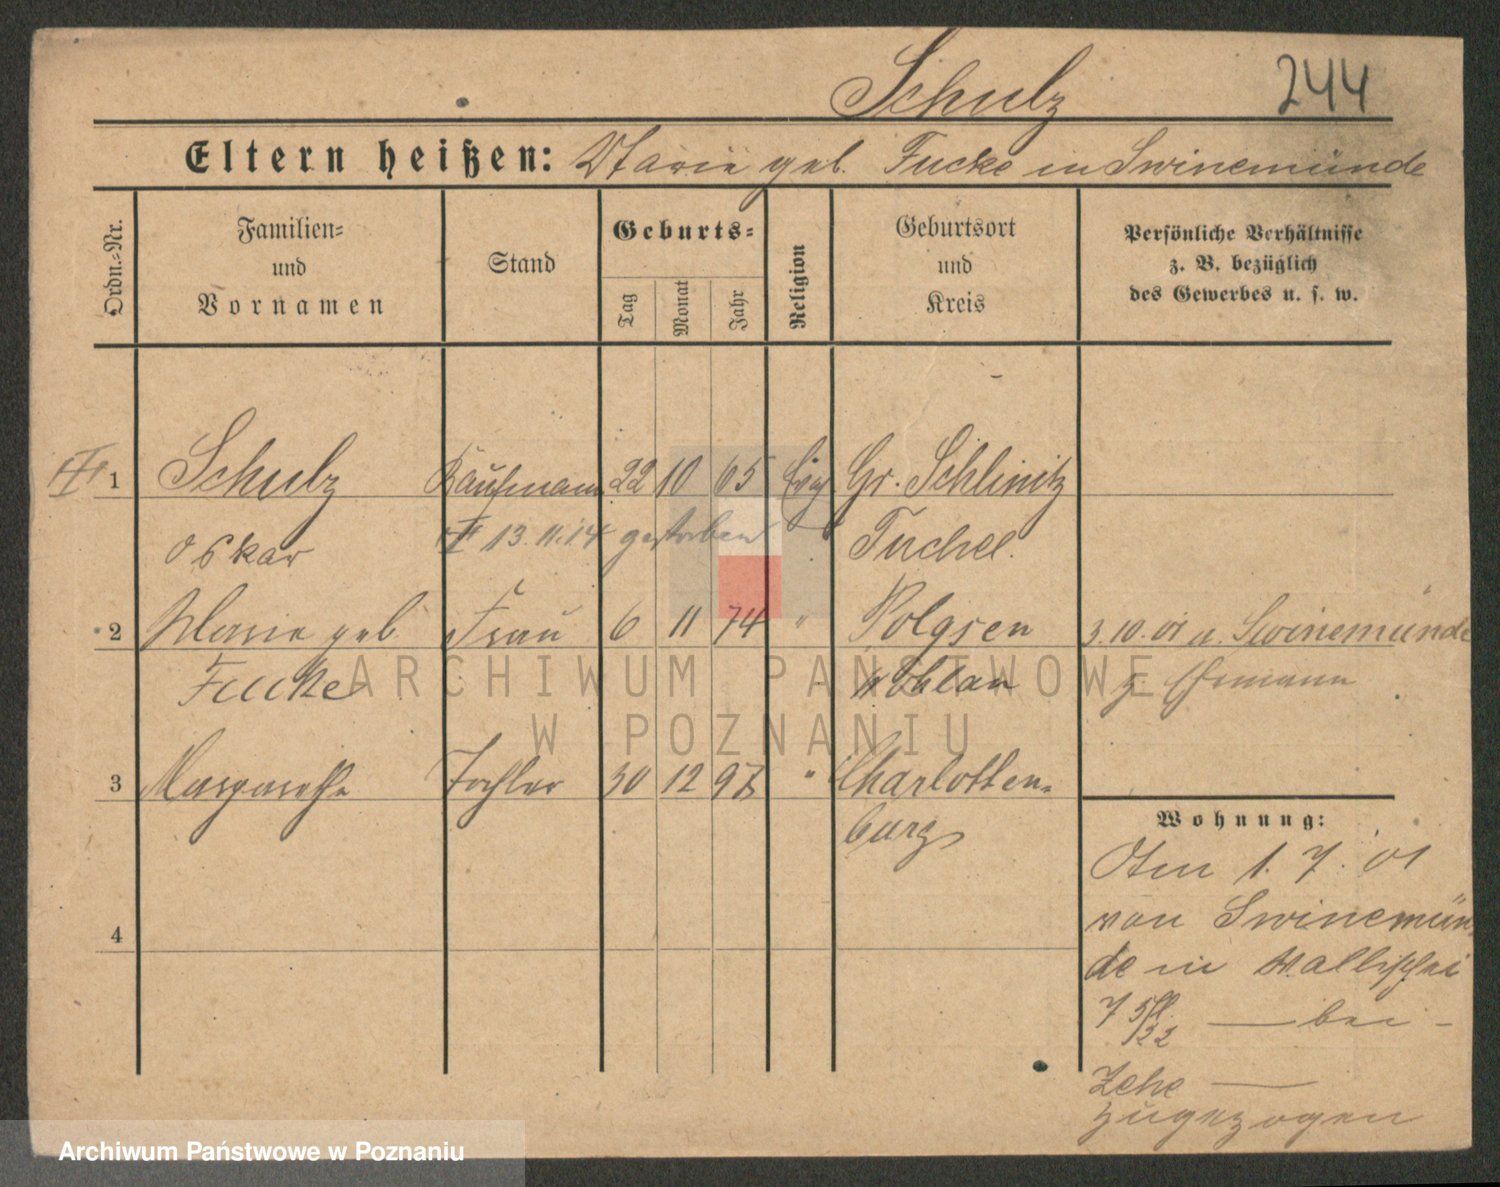 Schulz 244
Eltern heißen: Marie geb. Fucke in Swinemünde
Ordn.-Nr.
Familien-
und
Vornamen
Stand
Geburts-
Tag
Monat
Jahr
Religion
Geburtsort
und
Kreis
Persönliche Verhältnisse
z. B. bezüglich
des Gewerbes u. s. w.
1 Schulz Kaufmann 22 10 65 Evg Gr. Schlinitz
Oskar 13.11.14 gestorben " Tuchel.
2 Marie geb. Frau 6 11 74 " Polgsen 3.10.01 n. Swinemünde
Fucke Wohlau z. Ehemann
3 Margarethe Tochter 30 12 97 " Charlotten-
burg
Wohnung:
Am 1.7.01
von Swinemün-
4
de in Wallischei
7
bei -
Zehe
zugezogen
ARCHIWUM PAŃSTWOWE
W POZNANIU
Archiwum Państwowe w Poznaniu